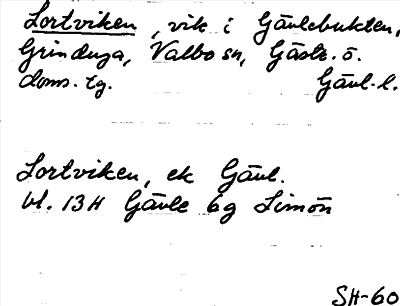 Lortviken, vik i Gävlebukten,
Grinduga, Valbo sn, Gästr. ö.
doms. tg. Gävl. l.
Lortviken, ek Gävl.
bl. 13H Gävle 6g Limön
SH-60